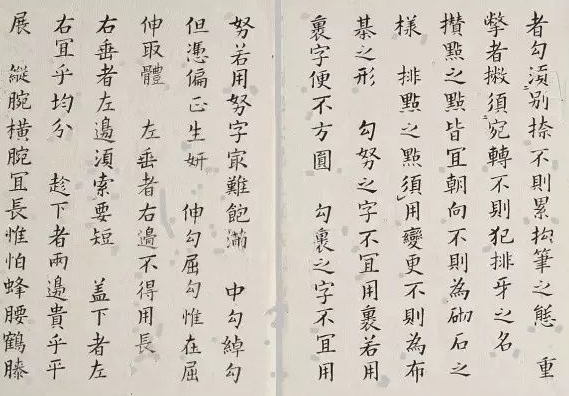 者勾湏別捺不則累拘筆之態　重
撆者撇須宛轉不則犯排牙之名
攢點之點皆冝朝向不則為砌石之
樣　排點之點須用變更不則為布
棊之形　勾努之字不冝用裹若用
裹字便不方圓　勾裹之字不冝用
努若用努字家難飽滿　中勾綽勾
但憑偏正生妍　伸勾屈勾惟在屈
伸取體　左垂者右邊不得用長
右垂者左邊湏索要短　盖下者左
右冝乎均分　趁下者兩邊貴乎平
展　縱腕橫腕冝長惟怕蜂腰鶴膝